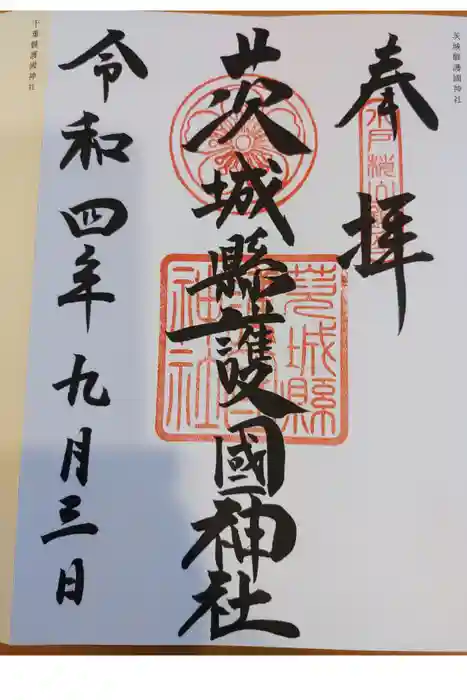 茨城縣護國神社
奉拝
茨城縣護國神社
令和四年九月三日
千葉縣護國神社
茨城縣
神社